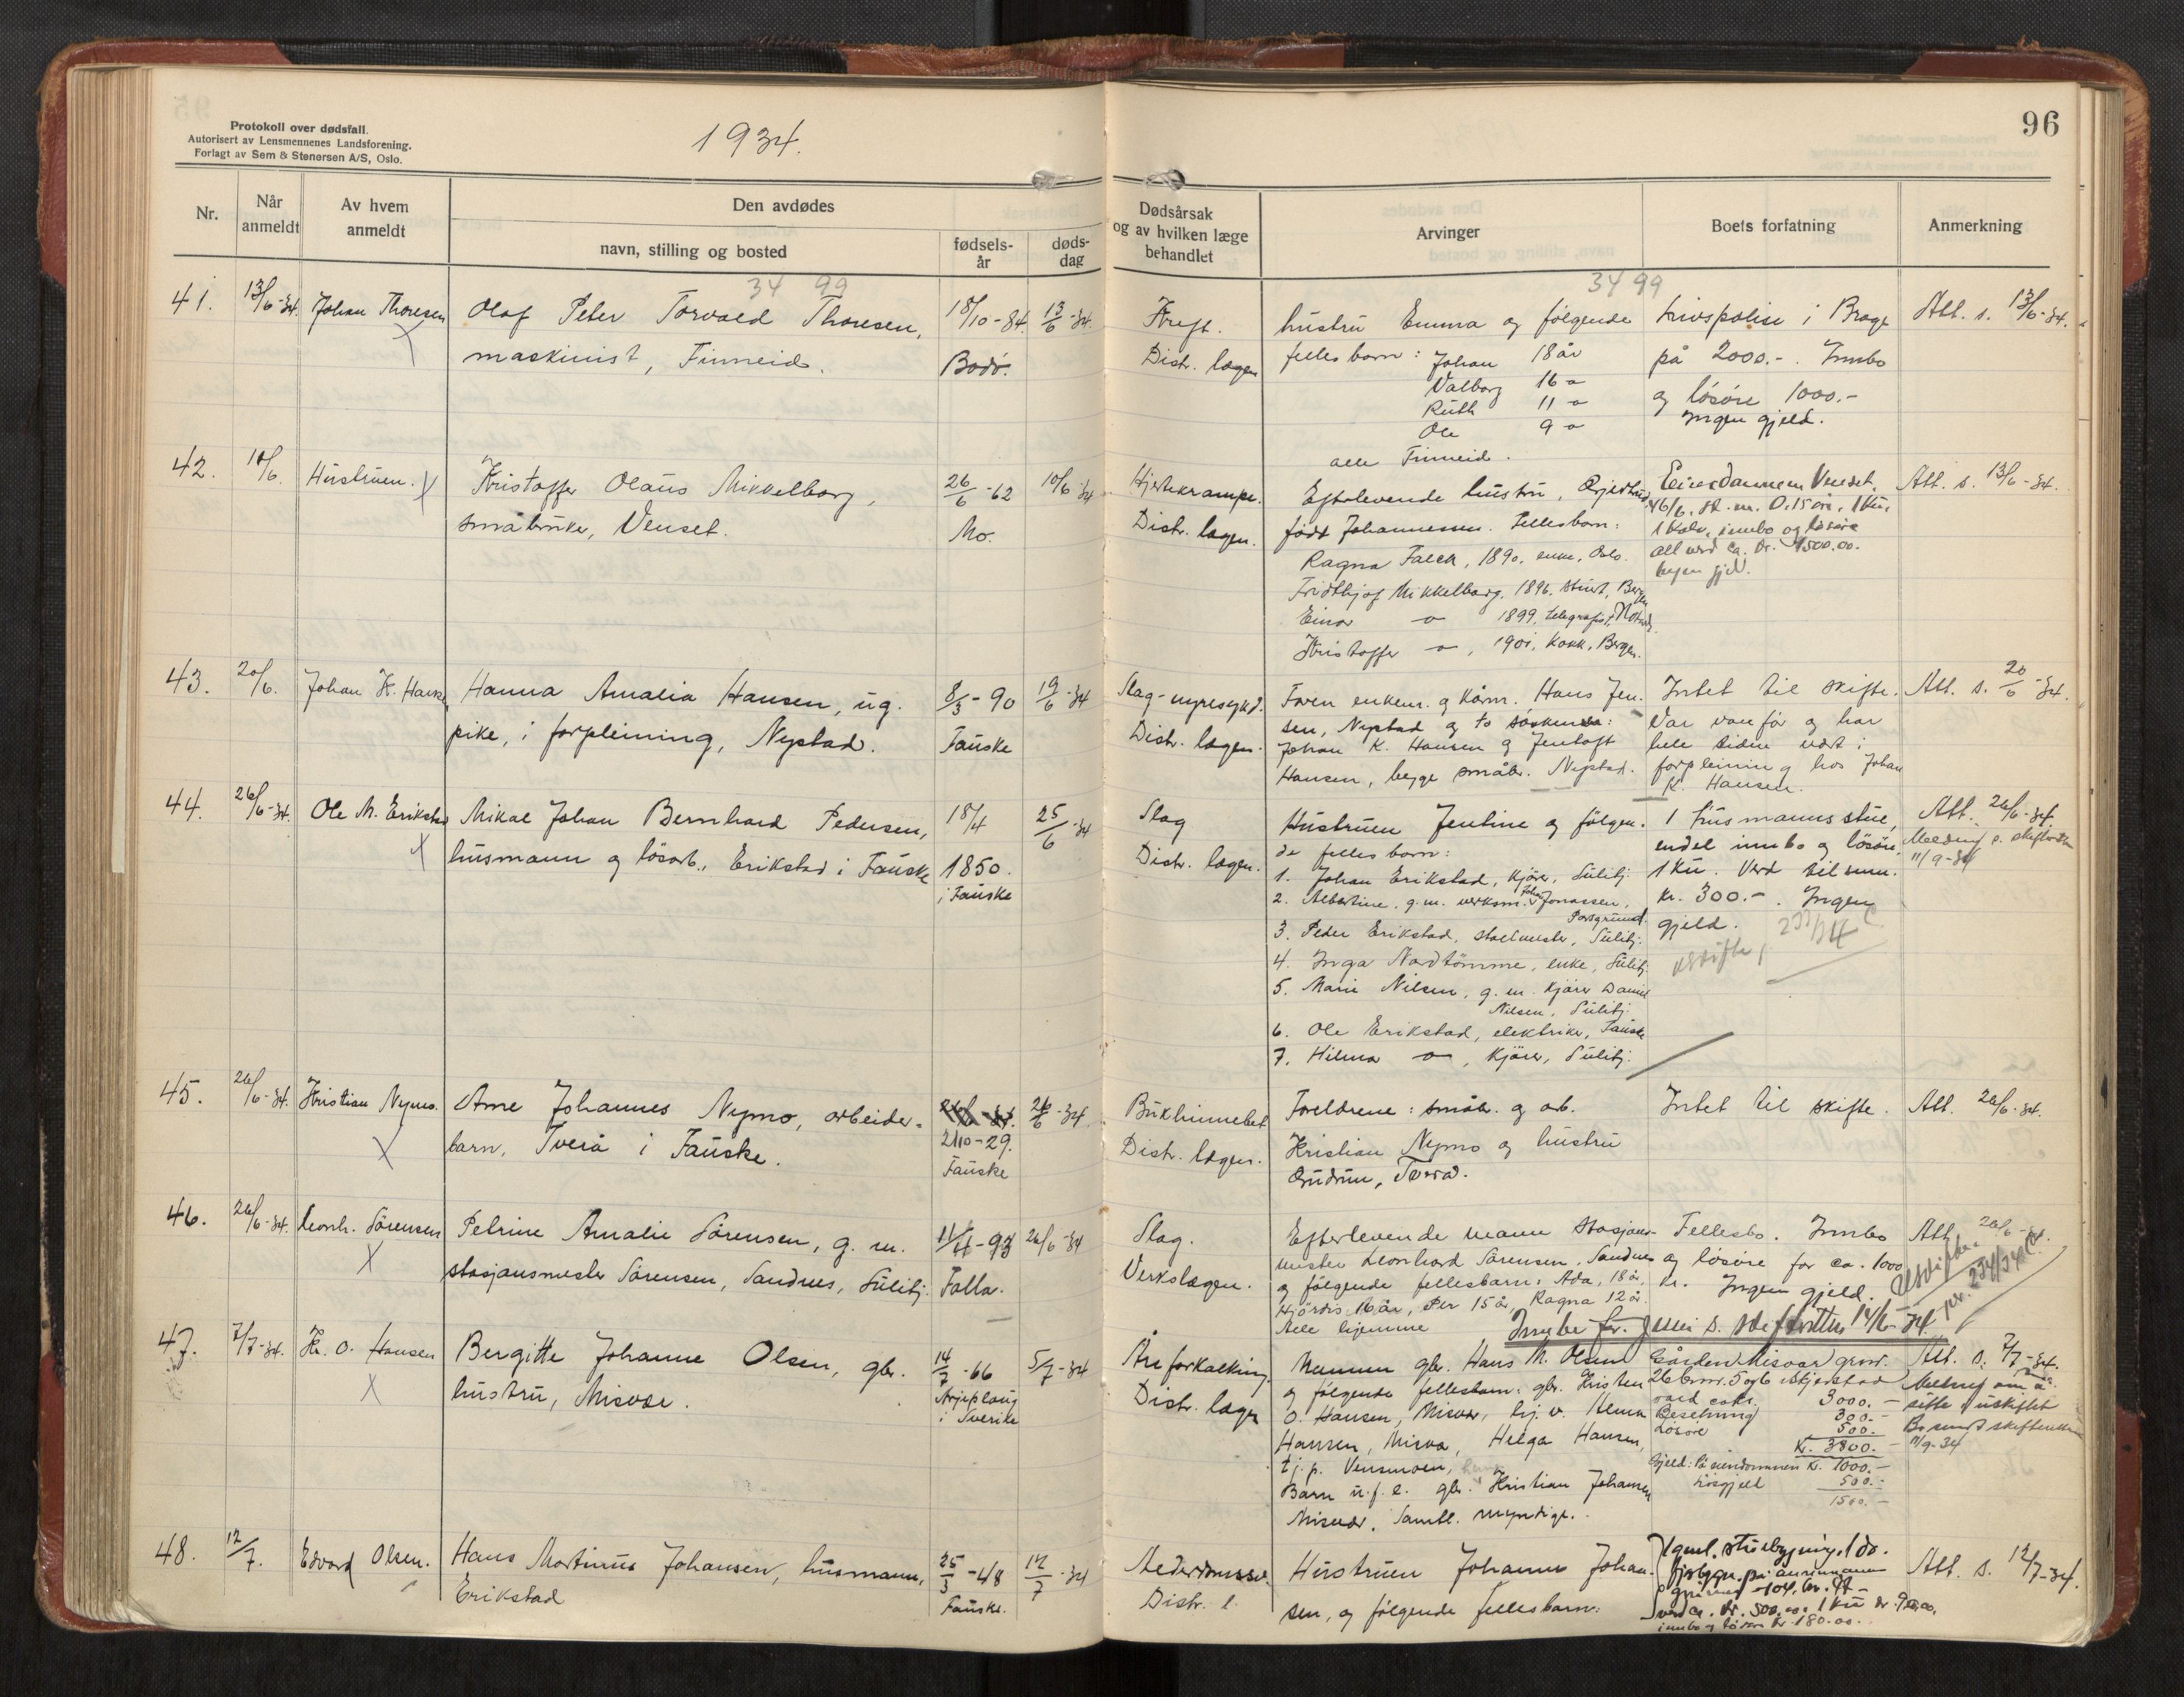 Protokoll over dødsfall.
Autorisert av Lensmennenes Landsforening.
Forlagt av Sem & Stenersen A/S, Oslo.
1934.
96
Nr.
Når anmeldt
Av hvem anmeldt
Den avdødes
navn, stilling og bosted
fødsels-år
døds-dag
Dødsårsak og av hvilken læge behandlet
Arvinger
Boets forfatning
Anmerkning
34 99
34 99
41. 13/6-34. Johan Thoresen
Olaf Peter Torvald Thoresen,
maskinist, Finneid.
18/10-84.
Bodö.
13/6-34.
Kreft.
Distr. lægen
hustru Emma og følgende
felles barn: Johan 18 år
Valborg 16 "
Ruth 11 "
Ole 9 "
alle Finneid.
Livspolise i Brage
på 2000.-. Innbo
og lösöre 1000.-
Ingen gjeld.
Att. s. 13/6-34.
42. 10/6. Hustruen.
Kristoffer Olaus Mikkelborg,
småbruker, Venset.
26/6-62
Mo.
10/6-34
Hjertekrampe.
Distr. lægen.
Efterlevende hustru,
født Johannessen. Fellesbarn:
Ragna Falck, 1890, enke, Oslo.
Fridthjof Mikkelborg. 1896, stuert, Bergen
Einar " 1899, telegrafist,
Kristoffer ", 1901, Kokk, Bergen.
Eiendommen Venset,
46/6. sk. m. 0.15 øre, 1 ku,
1 kalv, innbo og lösöre
alt verd ca. kr. 1500.00.
Ingen gjeld.
Att. s. 13/6-34.
43. 20/6. Johan K. Hansen
Hanna Amalia Hansen, ug.
pike, i forpleining, Nystad.
8/3-90
Fauske
19/6-34
Slag-nyresykd.
Distr. lægen.
Faren enkem. og kårm. Hans Jen-
sen, Nystad og to søskende:
Johan K. Hansen og Jentoft
Hansen, begge småbr. Nystad.
Intet til skifte.
Var vanför og har
hele tiden vært i
forpleining hos Johan
K. Hansen.
Att. s. 20/6-34.
44. 26/6-34. Ole M. Erikstad
Mikal Johan Bernhard Pedersen,
husmann og lösarb., Erikstad i Fauske
18/4
1850.
i Fauske
25/6-34
Slag
Distr. lægen.
Hustruen Jentine og fölgen-
de felles barn:
1. Johan Erikstad, kjörer, Sulitj.
2. Albertine, g. m. verksm. Johan Jonassen,
Porsgrund.
3. Peder Erikstad, stallmester, Sulitj.
4. Inga Nordtömme, enke, Sulitj.
5. Marie Nilsen, g. m. kjörer Daniel
Nilsen, Sulitj.
6. Ole Erikstad, elektriker, Fauske
7. Hilmar ", kjörer, Sulitj.
1 husmannsstue,
endel innbo og lösöre,
1 ku. Verd tilsamm.
kr. 300.-. Ingen
gjeld.
Uskifte, 233/34
Att. 26/6-34.
Melding s. skifteretten
11/9-34
45. 26/6-34. Kristian Nymo.
Arne Johannes Nymo, arbeider-
barn, Tverå i Fauske.
2/10-29.
Fauske
26/6-34
Bukhinnebet.
Distr. lægen.
Foreldrene: småbr. og arb.
Kristian Nymo og hustru
Gudrun, Tverå.
Intet til skifte.
Att. 26/6-34.
46. 26/6-34. Leonh. Sörensen
Petrine Amalie Sörensen, g. m.
stasjonsmester Sörensen, Sandnes, Sulitj.
11/4-93
Folla.
26/6-34
Slag.
Verkslægen.
Efterlevende mann stasjons-
mester Leonhard Sörensen, Sandnes
og følgende fellesbarn: Ada, 18 år,
Hjördis 16 år, Per 15 år, Ragna 12 år.
Alle hjemme
Fellesbo. Innbo
og lösöre for ca. 1000
kr. Ingen gjeld.
Att. 26/6-34.
Uskifte 234/34
47. 7/7-34. Kr. O. Hansen
Bergitte Johanne Olsen, gbr.
hustru, Misvær.
14/7-66
Arjeplaug
i Sverike
5/7-34
Åreforkalkning.
Distr. lægen
Mannen gbr. Hans M. Olsen
og følgende fellesbarn: gbr. Kristen
O. Hansen, Misvær, hj. v. Alma
Hansen, Misvær, Helga Hansen,
tj. p. Vensmoen,
Barn u. f. e. gbr. Kristian Johansen
Misvær. Samtl. myndige.
Gården Misvær grnr.
26 brnr. 5 og 6 i Skjerstad
verd 3000.-
Besetning 300.-
Lösöre 500.-
Kr. 3800.-
Gjeld: På eiendommen kr. 1000.-
Lösgjeld 500.-
1500.-
Att. s. 7/7-34.
Melding om å
sitte i uskiftet
Bo sendt skifteretten
11/9-34
48. 12/7. Edvard Olsen.
Hans Martinus Johansen, husmann,
Erikstad
25/3-48
Fauske.
12/7-34
Distr. l.
Hustruen Johanna Johan-
sen, og følgende fellesbarn:
1 gml. stuebygning, 1 do.
fjösbygn. på annenmanns
verd ca. kr. 500.00. 1 ku kr. 90.00,
innbo og lösöre kr. 180.00.
Att. s. 12/7-34.